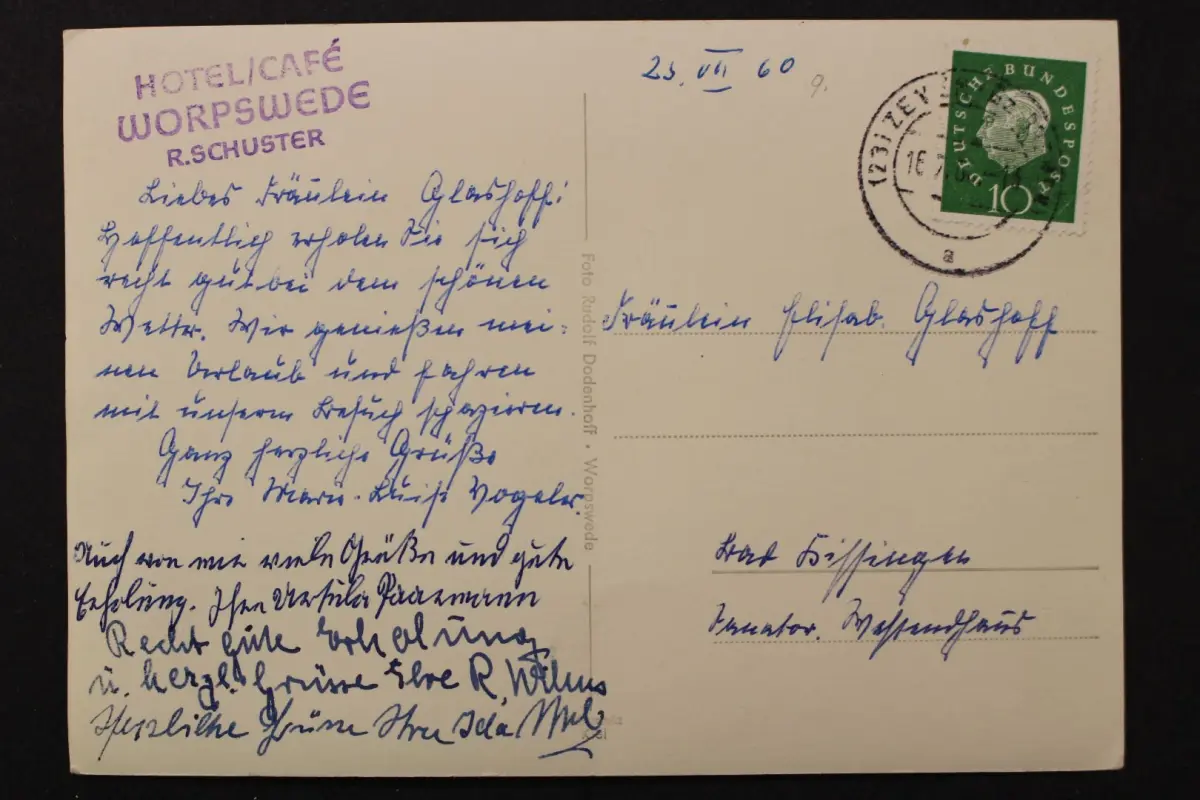 HOTEL/CAFÉ
WORPSWEDE
R.SCHUSTER
Liebes Fräulein Glashoff!
Hoffentlich erholen Sie sich
recht gut bei dem schönen
Wetter. Wir genießen mei-
nen Urlaub und fahren
mit unserm Besuch spazieren.
Ganz herzliche Grüße
Ihre Marie-Luise Vogeler.
Auch von mir viele Grüße und gute
Erholung. Ihre Ursula Paarmann
Recht gute Erholung
u. herzl. Grüsse Ihre R. Wilms
Herzliche Grüße Ihre Ida
Foto Rudolf Dodenhoff · Worpswede
23. VII 60
9.
DEUTSCHE BUNDESPOST
10
(23) ZEVEN
16.7.
a
Fräulein Elisab. Glashoff
Bad Kissingen
Sanator. Westendhaus